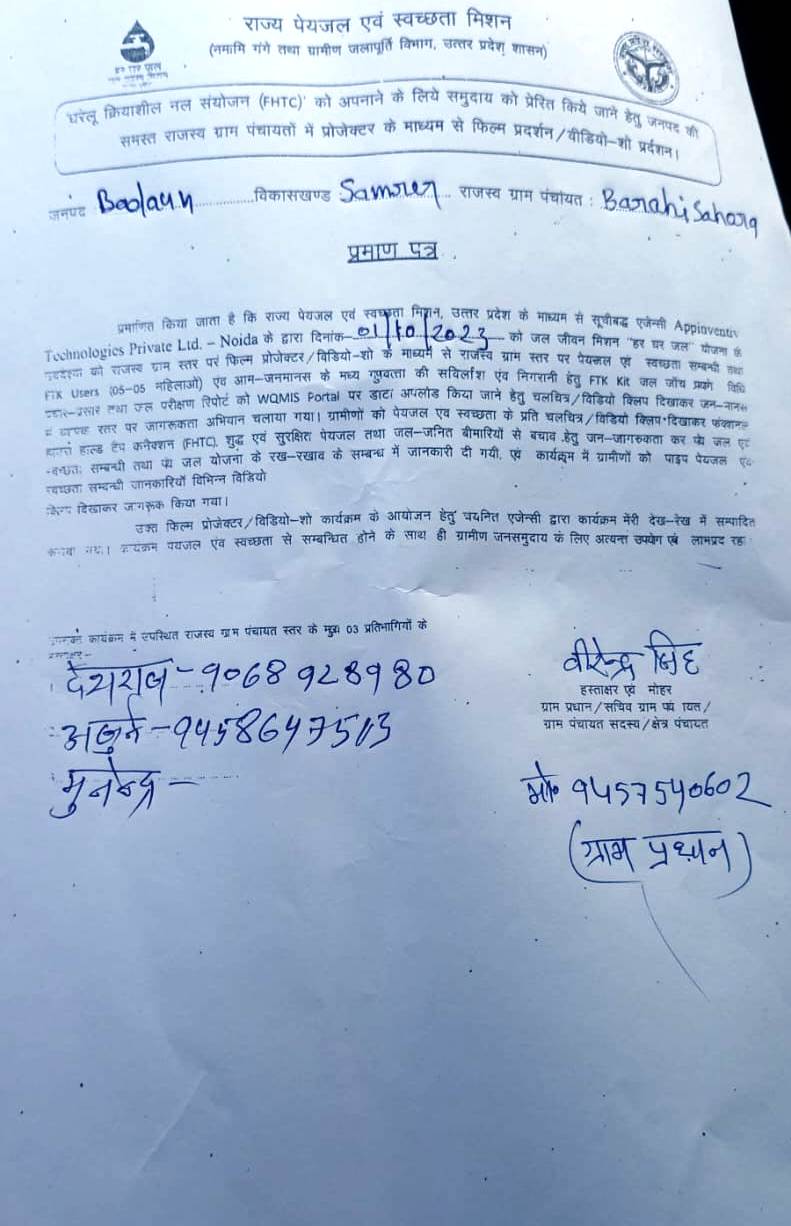 राज्य पेयजल एवं स्वच्छता मिशन
(नमामि गंगे तथा ग्रामीण जलापूर्ति विभाग, उत्तर प्रदेश शासन)
हर घर जल
घरेलू क्रियाशील नल संयोजन (FHTC)' को अपनाने के लिये समुदाय को प्रेरित किये जाने हेतु जनपद की
समस्त राजस्व ग्राम पंचायतों में प्रोजेक्टर के माध्यम से फिल्म प्रदर्शन/वीडियो-शो प्रर्दशन।
जनपद Badaun विकासखण्ड Samrer राजस्व ग्राम पंचायत : Barahi Sahora
प्रमाण पत्र
प्रमाणित किया जाता है कि राज्य पेयजल एवं स्वच्छता मिशन, उत्तर प्रदेश के माध्यम से सूचीबद्ध एजेन्सी Appinventiv
Technologies Private Ltd. - Noida के द्वारा दिनांक-01/10/2023 को जल जीवन मिशन "हर घर जल" योजना के
को राजस्व ग्राम स्तर पर फिल्म प्रोजेक्टर/विडियो-शो के माध्यम से राजस्व ग्राम स्तर पर पेयजल एवं स्वच्छता सम्बन्धी तथा
FTK Users (05-05 महिलाओ) एवं आम-जनमानस के मध्य गुणवत्ता की एंव निगरानी हेतु FTK Kit जल जाँच विधि
प्रचार-प्रसार तथा जल परीक्षण रिपोर्ट को WQMIS Portal पर डाटा अपलोड किया जाने हेतु चलचित्र/विडियो क्लिप दिखाकर जन-मानस
में व्यापक स्तर पर जागरूकता अभियान चलाया गया। ग्रामीणों को पेयजल एव स्वच्छता के प्रति चलचित्र/विडियो क्लिप दिखाकर फंक्शनल
हाउस होल्ड टैप कनैक्शन (FHTC), शुद्ध एवं सुरक्षित पेयजल तथा जल-जनित बीमारियों से बचाव हेतु जन-जागरुकता कर पेय जल एंव
स्वच्छता सम्बन्धी तथा पेय जल योजना के रख-रखाव के सम्बन्ध में जानकारी दी गयी, एवं कार्यक्रम में ग्रामीणों को पाइप पेयजल एंव
स्वच्छता सम्बन्धी जानकारियों विभिन्न विडियो
क्लिप दिखाकर जागरूक किया गया।
उक्त फिल्म प्रोजेक्टर/विडियो-शो कार्यक्रम के आयोजन हेतु चयनित एजेन्सी द्वारा कार्यक्रम मेरी देख-रेख में सम्पादित
गया। कार्यक्रम पेयजल एंव स्वच्छता से सम्बन्धित होने के साथ ही ग्रामीण जनसमुदाय के लिए अत्यन्त उपयोग एवं लाभप्रद रहा
कार्यक्रम में उपस्थित राजस्व ग्राम पंचायत स्तर के मुख्य 03 प्रतिभागियों के
हस्ताक्षर-
देशराज - 9068928980
अर्जुन - 9458647513
मुनेन्द्र -
वीरेन्द्र सिंह
हस्ताक्षर एवं मोहर
ग्राम प्रधान/सचिव ग्राम पंचायत/
ग्राम पंचायत सदस्य/क्षेत्र पंचायत
मो० 9457540602
(ग्राम प्रधान)